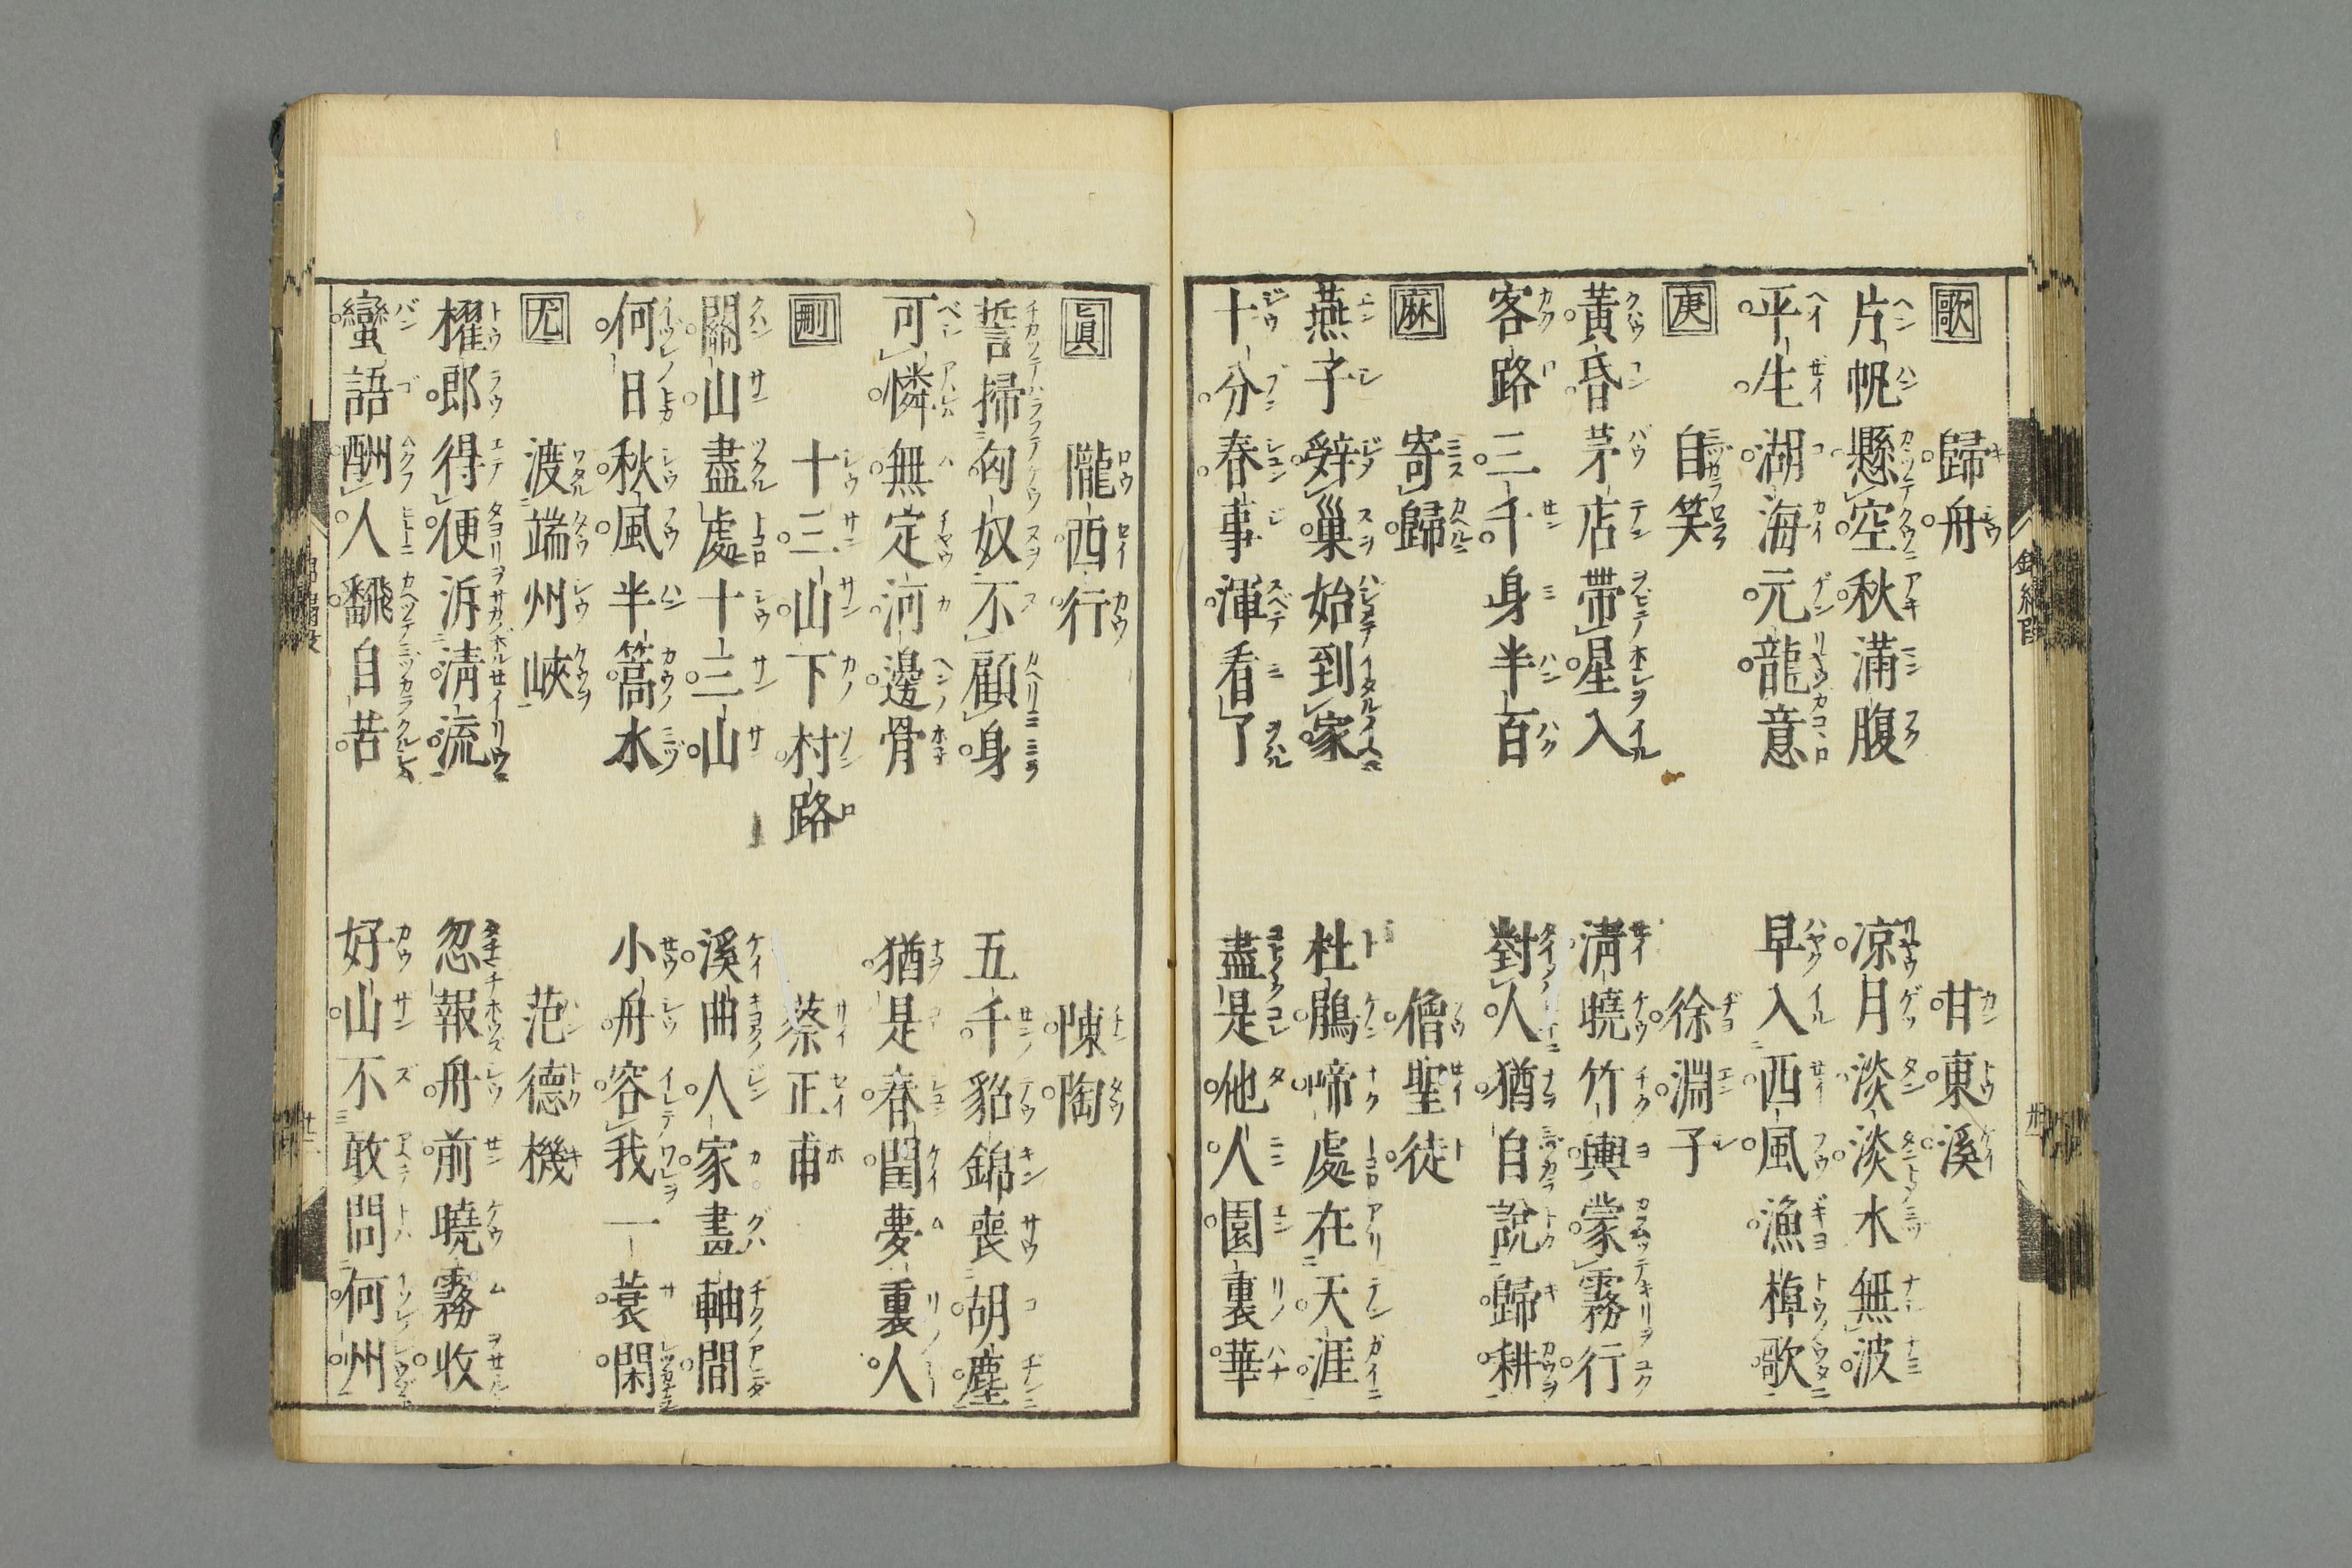 歌
歸舟　甘東溪
片帆懸空秋滿腹　凉月淡淡水無波
平生湖海元龍意　早入西風漁棹歌
庚
自笑　徐淵子
黃昏茅店帶星入　淸曉竹輿蒙霧行
客路三千身半百　對人猶自說歸耕
麻
寄歸　僧聖徒
燕子辤巢始到家　杜鵑啼處在天涯
十分春事渾看了　盡是他人園裏華
眞
隴西行　陳陶
誓掃匈奴不顧身　五千貂錦喪胡塵
可憐無定河邊骨　猶是春閨夢裏人
刪
十三山下村路　蔡正甫
關山盡處十三山　溪曲人家畵軸間
何日秋風半篙水　小舟容我一蓑閑
尤
渡端州峽　范德機
櫂郎得便泝淸流　忽報舟前曉霧收
蠻語酬人翻自苦　好山不敢問何州